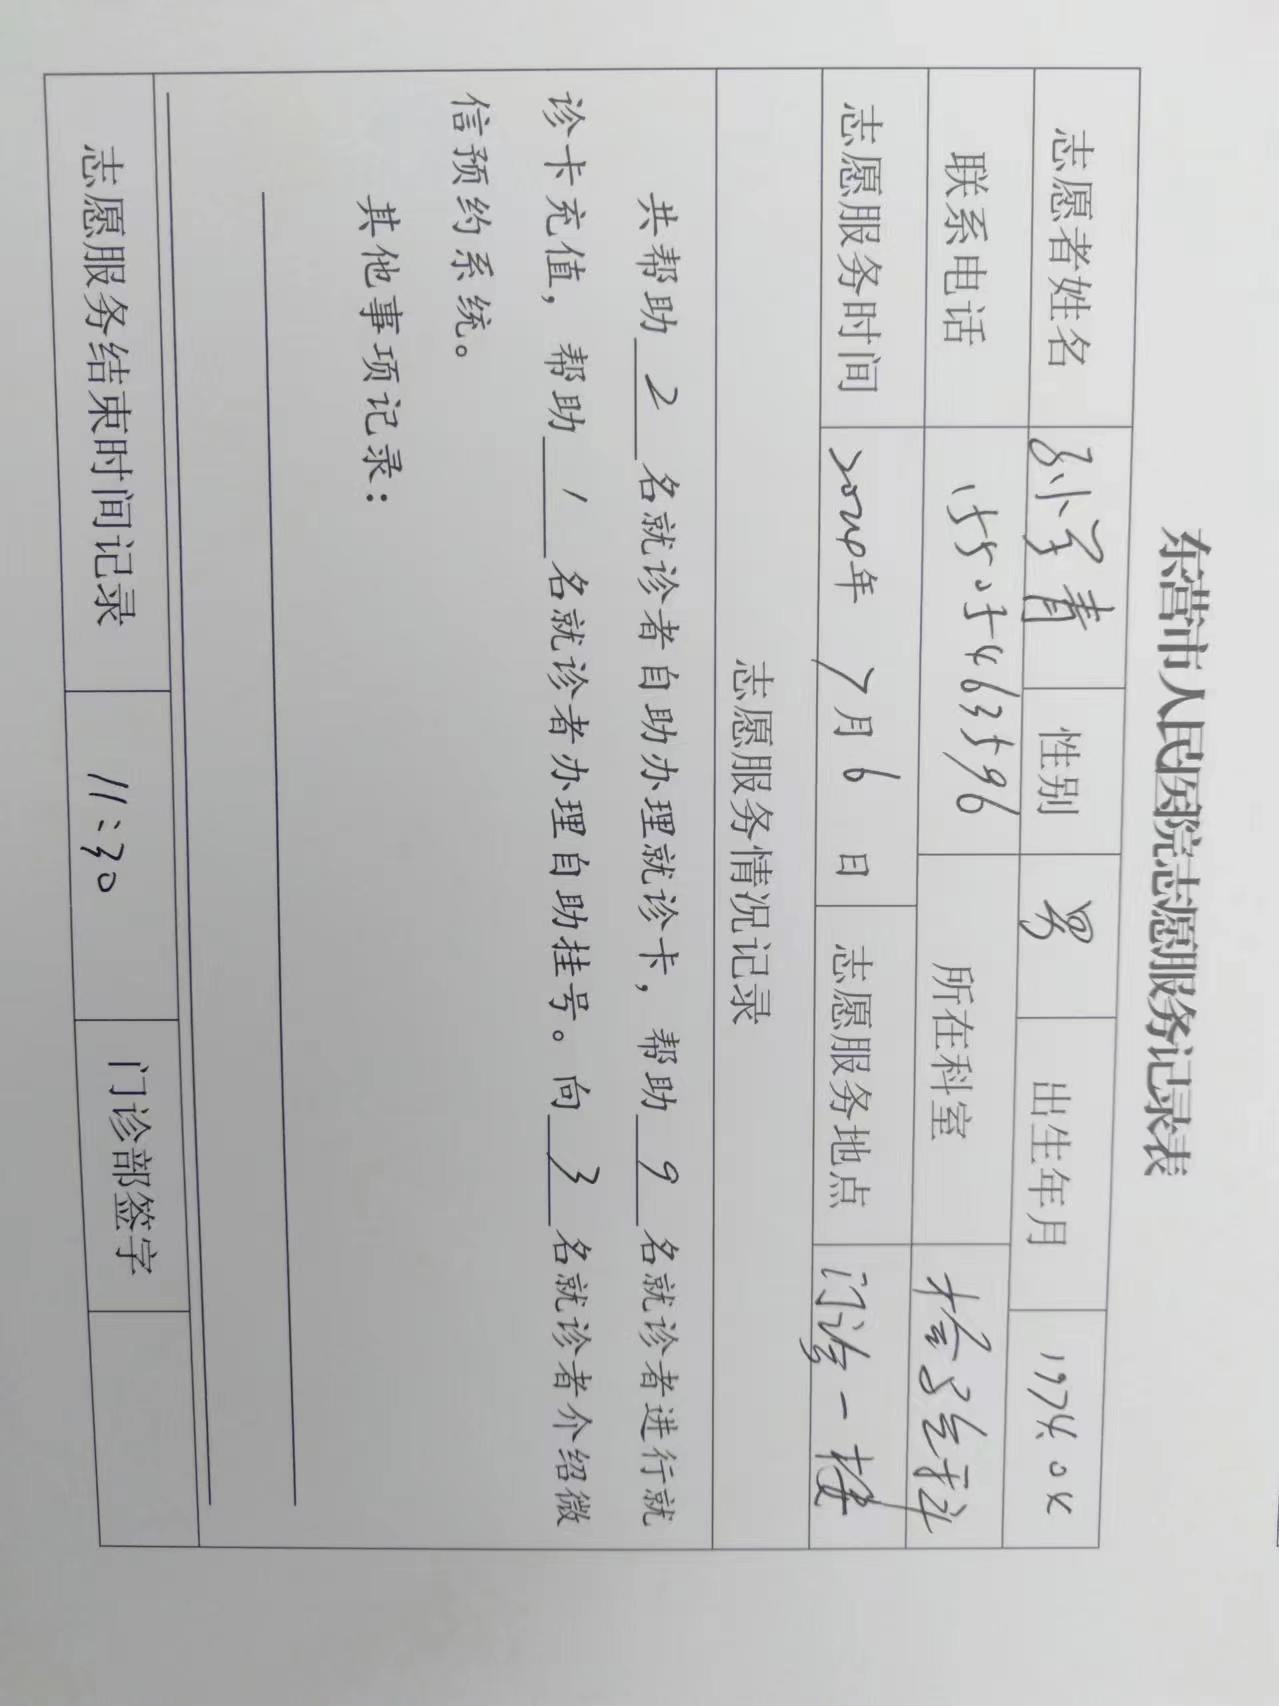 东营市人民医院志愿服务记录表
志愿者姓名 孙学青 性别 男 出生年月 1974.
联系电话 15505463596 所在科室 检验科
志愿服务时间 年 7月6日 志愿服务地点 门诊一楼
志愿服务情况记录
共帮助 2 名就诊者自助办理就诊卡，帮助 9 名就诊者进行就
诊卡充值，帮助 1 名就诊者办理自助挂号。向 3 名就诊者介绍微
信预约系统。
其他事项记录：
志愿服务结束时间记录 11:30 门诊部签字